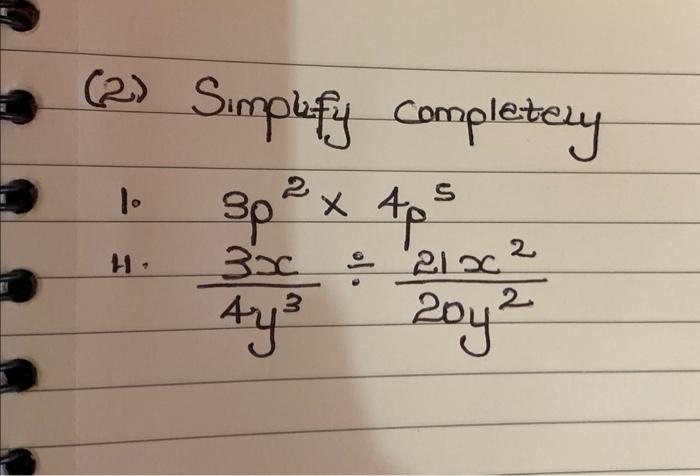 (2) Simplify completely
I. 3p² × 4p⁵
II. 3x/4y³ ÷ 21x²/20y²